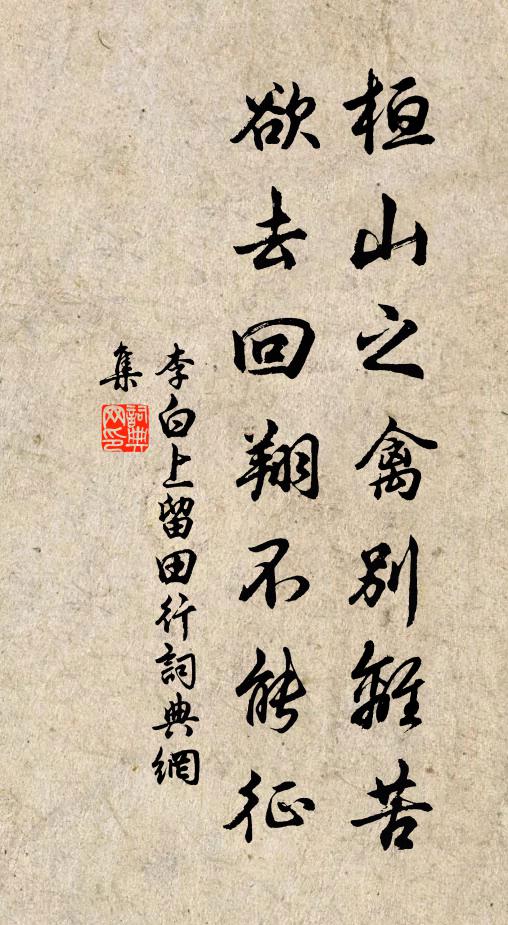 桓山之禽別離苦
欲去回翔不能征
李白上留田行詞典網
集
詞典
网印